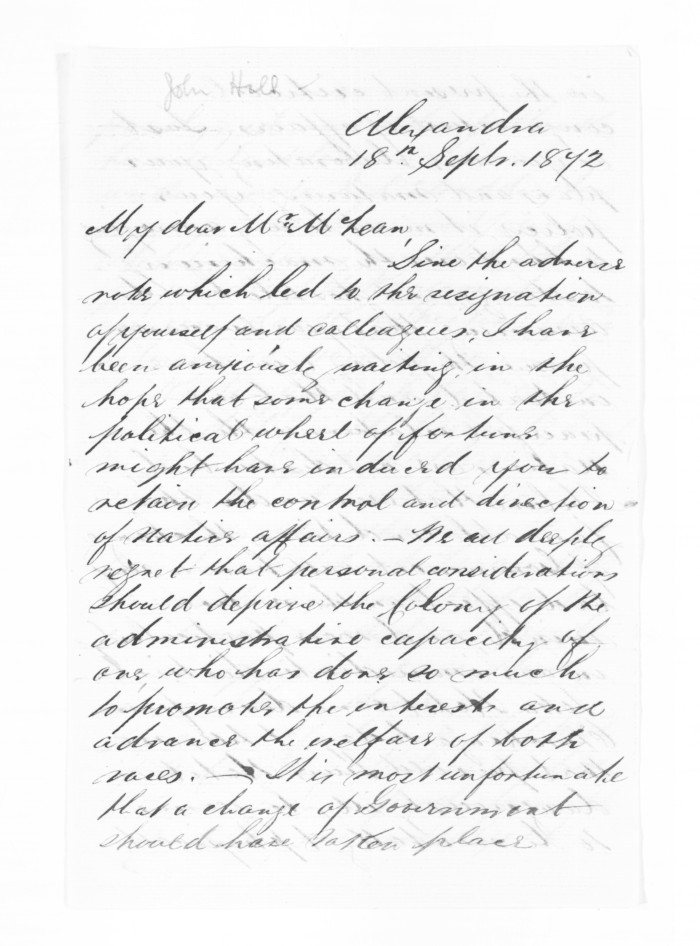 John Hall
Alexandra
18th Septr. 1872
My dear Mr McLean,
Sine the adverse
vote which led to the resignation
of yourself and colleagues, I have
been anxiously waiting, in the
hope that some change in the
political wheel of fortune
might have induced you to
retain the control and direction
of Native affairs. — We all deeply
regret that personal considerations
should deprive the Colony of the
administrative capacity of
one, who has done so much
to promote the interests and
advance the welfare of both
races. — It is most unfortunate
that a change of Government
should have taken place